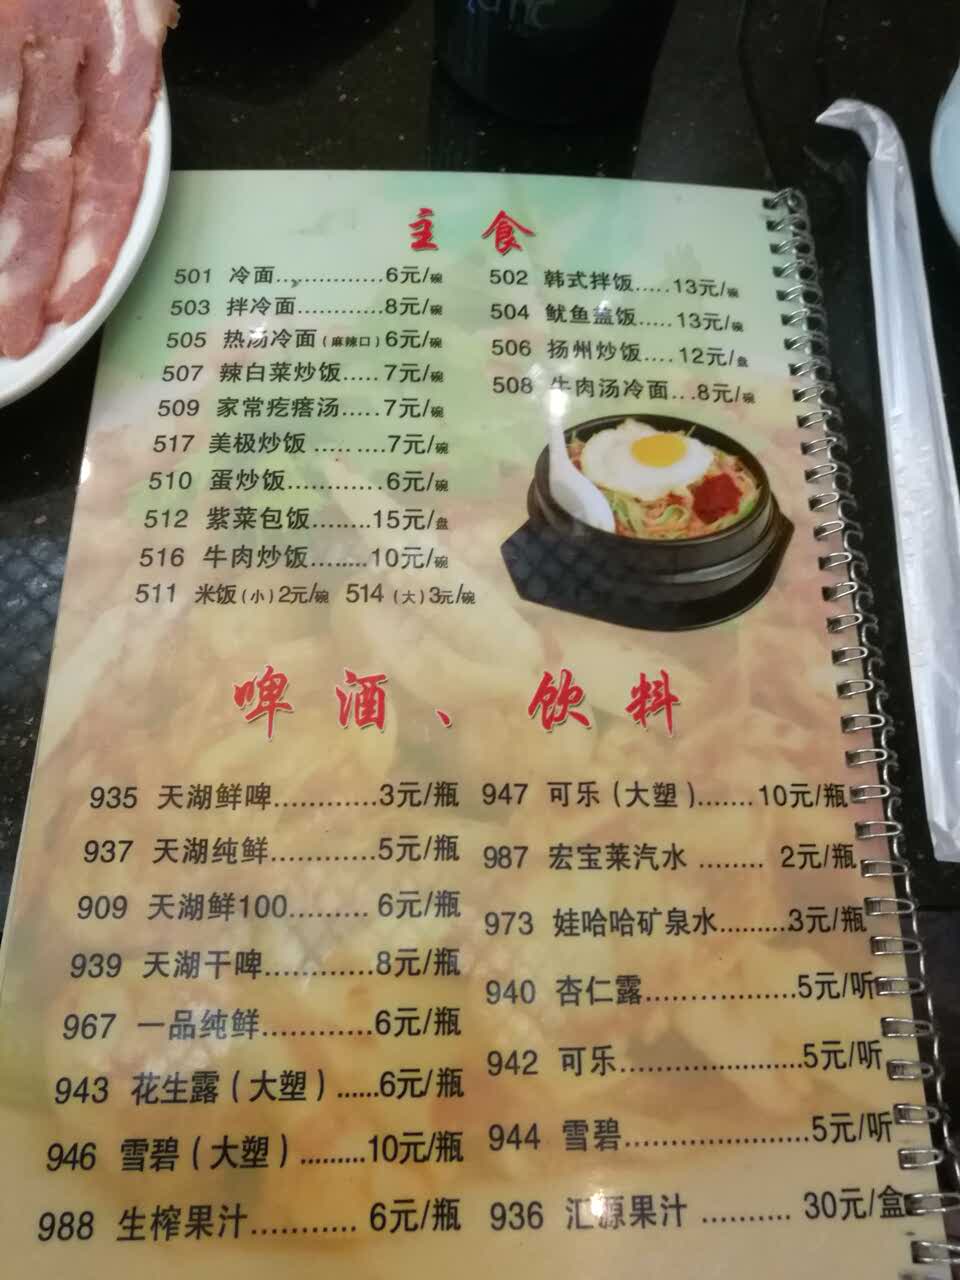 主食
501 冷面.............6元/碗
503 拌冷面............8元/碗
505 热汤冷面(麻辣口)6元/碗
507 辣白菜炒饭.....7元/碗
509 家常疙瘩汤.....7元/碗
517 美极炒饭.........7元/碗
510 蛋炒饭............6元/碗
512 紫菜包饭........15元/盘
516 牛肉炒饭........10元/碗
511 米饭(小)2元/碗 514 (大)3元/碗
502 韩式拌饭.....13元/碗
504 鱿鱼盖饭.....13元/碗
506 扬州炒饭....12元/盘
508 牛肉汤冷面...8元/碗
啤酒、饮料
935 天湖鲜啤............3元/瓶
937 天湖纯鲜............5元/瓶
909 天湖鲜100.........6元/瓶
939 天湖干啤............8元/瓶
967 一品纯鲜............6元/瓶
943 花生露(大塑)......6元/瓶
946 雪碧(大塑).........10元/瓶
988 生榨果汁...........6元/瓶
947 可乐(大塑).......10元/瓶
987 宏宝莱汽水........2元/瓶
973 娃哈哈矿泉水.........3元/瓶
940 杏仁露.................5元/听
942 可乐....................5元/听
944 雪碧....................5元/听
936 汇源果汁..........30元/盒